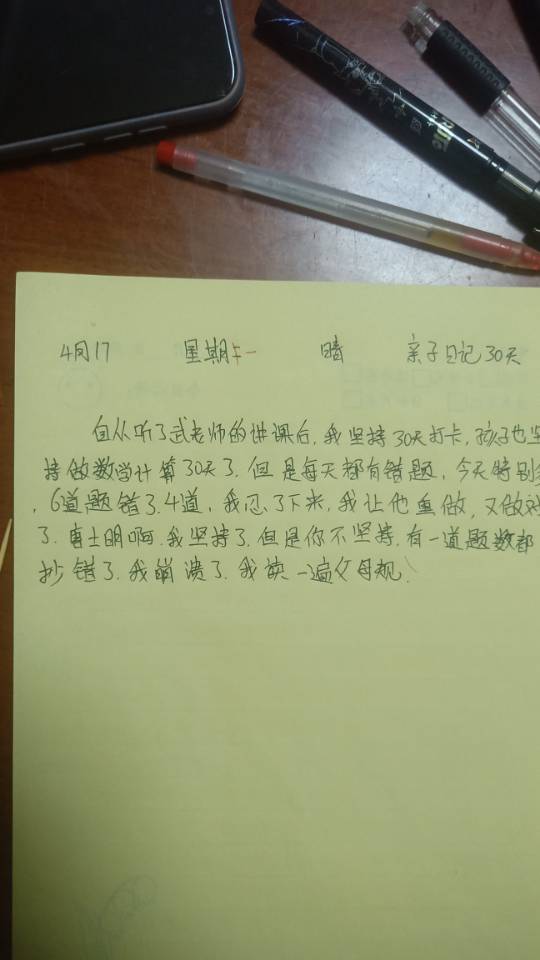 4月17 星期一 晴 亲子日记30天
自从听了武老师的讲课后,我坚持30天打卡,孩子也坚
持做数学计算30天了,但是每天都有错题,今天特别
,6道题错了4道,我忍了下来,我让他重做,又做对
了,唐士明啊,我坚持了,但是你不坚持,有一道题数都
抄错了,我崩溃了,我读一遍父母规。